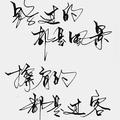 路过的
都是风景
擦肩的
都是过客